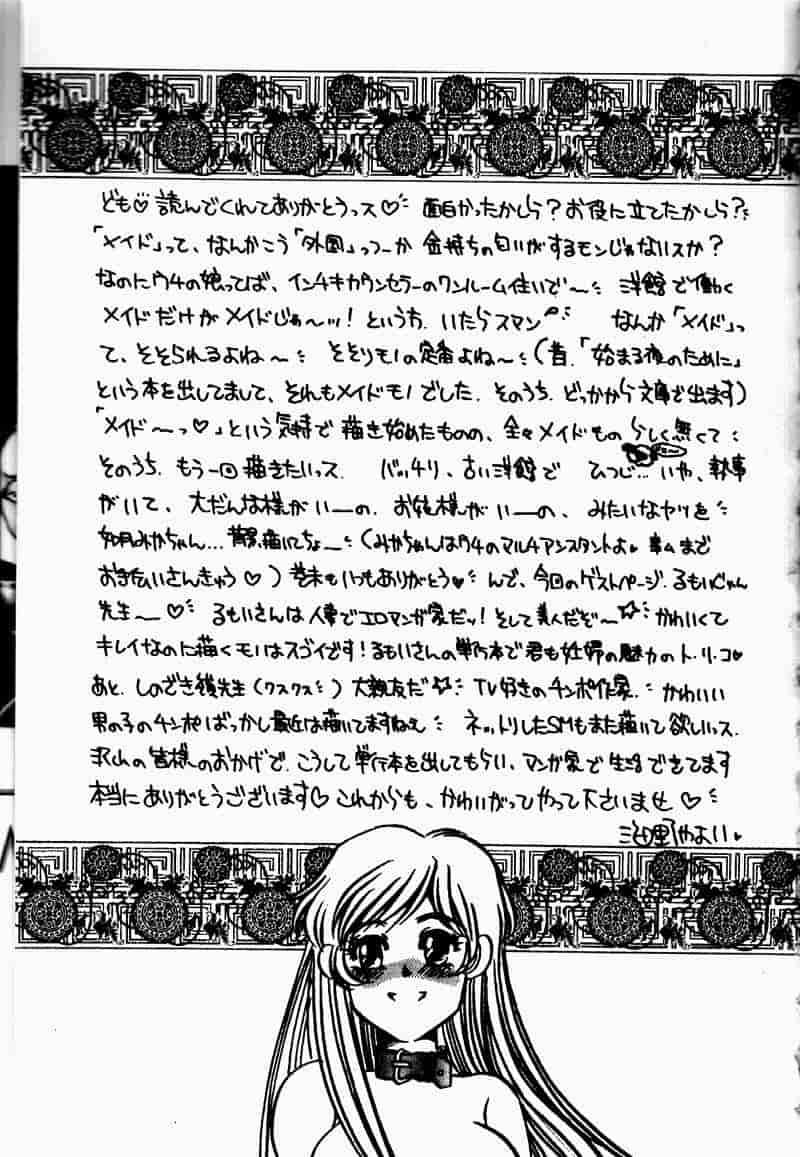 ども♡読んでくれてありがとうっス♡ 面白かったかしら?お役に立てたかしら?
「メイド」って、なんかこう「外国」っつーか 金持ちの匂いがするモンじゃないスか?
なのにウチの娘ってば、インチキカウンセラーのワンルーム住いで〜 洋館で働く
メイドだけがメイドじゃ〜ッ!というち、いたらスマン なんか「メイド」っ
て、そそられるよね〜 そそりモノの定番よね〜(昔、「始まる夜のために」
という本を出してまして、それもメイドモノでした。そのうち、どっかから文庫で出ます)
「メイド〜っ♡」という気持で描き始めたものの、全々メイドものらしく無くて
そのうち、もう一回描きたいっス。 バッチリ、古い洋館で ひつじ…いや、執事
がいて、大だんな様がいーの、お館様がいーの、みたいなヤツを
如月みかちゃん… 背景描いてちょー(みかちゃんはウチのマルチアシスタントよ♥ まで
おきてがいさんきゅう♡)巻末もいつもありがとう♥ んで、今回のゲストページ、るもいじゅん
先生〜♡ るもいさんは人妻でエロマンガ家だッ!そして美人だぞ〜 かわいくて
キレイなのに描くモノはスゴイです!るもいさんの単行本で君も妊婦の魅力のト・リ・コ♥
あと、しのざき嶺先生(クスクス)大親友だ TV好きのチンポ作家。 かわいい
男の子のチンポばっかし最近は描いてますねえ ネットリしたSMもまた描いて欲しいっス。
沢山の皆様のおかげで、こうして単行本を出してもらい、マンガ家で生活できてます
本当にありがとうございます♡これからも、かわいがってやって下さいませ♡
海野やよい♥